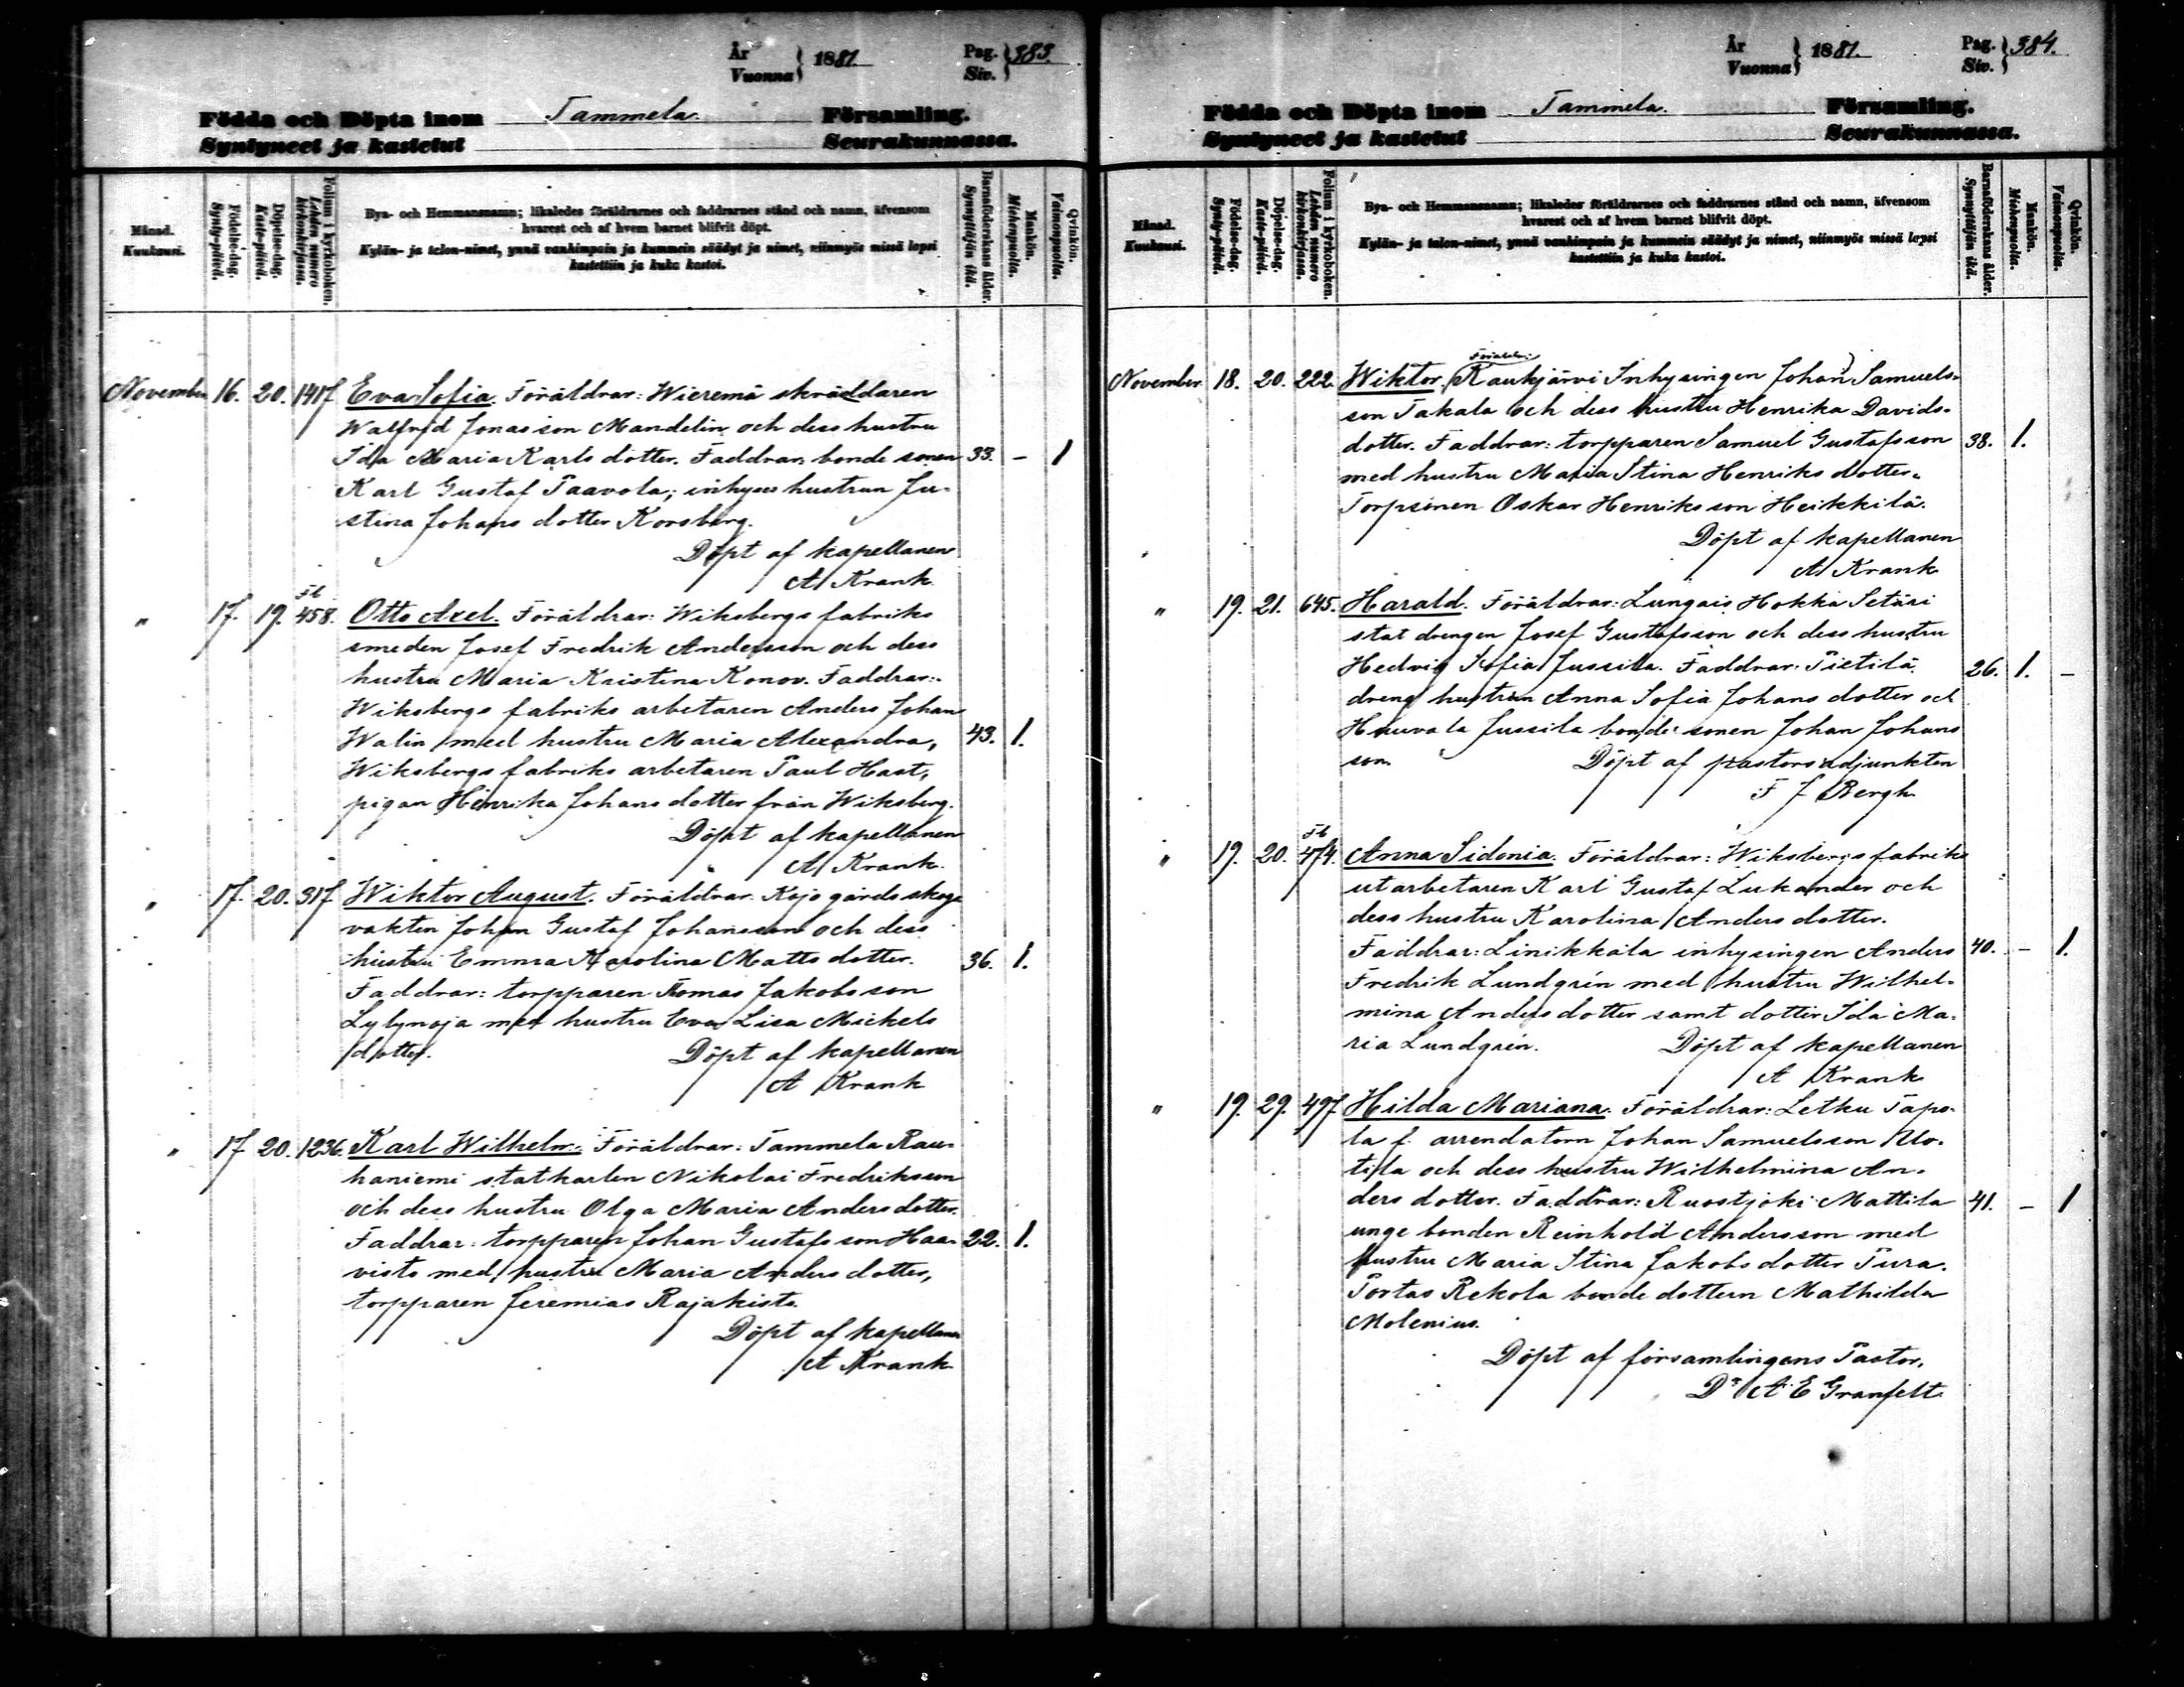 År
Vuonna } 1881.
Pag.
Siv. } 383.
Födda och Döpta inom Tammela. Församling.
Syntyneet ja kastetut Seurakunnassa.
Månad.
Kuukausi.
Födelse-dag.
Synty-päivä.
Döpelse-dag.
Kaste-päivä.
Folium i kyrkoboken.
Lehden numero kirkonkirjassa.
Bya- och Hemmansnamn; likaledes föräldrarnes och faddrarnes stånd och namn, äfvensom
hvarest och af hvem barnet blifvit döpt.
Kylän- ja talon-nimet, ynnä vanhimpain ja kummein säädyt ja nimet, niinmyös missä lapsi
kastettiin ja kuka kastoi.
Barnaföderskans ålder.
Synnyttäjän ikä.
Mankön.
Miehenpuolta.
Qvinkön.
Vaimonpuolta.
November 16. 20. 1417 Eva Sofia. Föräldrar: Wieremä skräddaren
Walfrid Jonasson Mandelin och dess hustru
Ida Maria Karls dotter. Faddrar: bonde sonen 33. – 1
Karl Gustaf Paavola; inhyses hustrun Ju-
stina Johans dotter Korsberg.
Döpt af kapellanen
A Krank.
" 17. 19. Fb 458. Otto Axel. Föräldrar: Wiksbergs fabriks
smeden Josef Fredrik Andersson och dess
hustru Maria Kristina Konov. Faddrar:
Wiksbergs fabriks arbetaren Anders Johan
Walin med hustru Maria Alexandra, 43. 1.
Wiksbergs fabriks arbetaren Paul Hast,
pigan Henrika Johans dotter från Wiksberg.
Döpt af kapellanen
A Krank.
" 17. 20. 317 Wiktor August. Föräldrar: Kojo gårds skogs
vakten Johan Gustaf Johansson och dess
hustru Emma Karolina Matts dotter. 36. 1.
Faddrar: torpparen Tomas Jakobsson
Lylynoja med hustru Eva Lisa Michels
dotter. Döpt af kapellanen
A Krank
" 17 20. 1236. Karl Wilhelm. Föräldrar: Tammela Rau-
haniemi statkarlen Nikolai Fredriksson
och dess hustru Olga Maria Anders dotter.
Faddrar: torpparen Johan Gustafsson Haa- 22. 1.
visto med hustru Maria Anders dotter,
torpparen Jeremias Rajakisto.
Döpt af kapellanen
A Krank
År
Vuonna } 1881.
Pag.
Siv. } 384.
Födda och Döpta inom Tammela. Församling.
Syntyneet ja kastetut Seurakunnassa.
Månad.
Kuukausi.
Födelse-dag.
Synty-päivä.
Döpelse-dag.
Kaste-päivä.
Folium i kyrkoboken.
Lehden numero kirkonkirjassa.
Bya- och Hemmansnamn; likaledes föräldrarnes och faddrarnes stånd och namn, äfvensom
hvarest och af hvem barnet blifvit döpt.
Kylän- ja talon-nimet, ynnä vanhimpain ja kummein säädyt ja nimet, niinmyös missä lapsi
kastettiin ja kuka kastoi.
Barnaföderskans ålder.
Synnyttäjän ikä.
Mankön.
Miehenpuolta.
Qvinkön.
Vaimonpuolta.
November 18. 20. 222. Wiktor. Kaukjärvi Inhysingen Johan Samuels-
son Takala och dess hustru Henrika Davids-
dotter. Faddrar: torpparen Samuel Gustafsson 38. 1.
med hustru Maria Stina Henriks dotter.
Torpsonen Oskar Henriksson Heikkilä.
Döpt af kapellanen
A Krank
" 19. 21. 645. Harald. Föräldrar: Lungais Hokka Setäri
stat drengen Josef Gustafsson och dess hustru
Hedvig Sofia Jussila. Faddrar: Pietilä 26. 1. –
dreng hustrun Anna Sofia Johans dotter och
Hauvala Jussila bonde sonen Johan Johans
son. Döpt af pastorsadjunkten
F J Bergh
" 19. 20. Fb 474. Anna Sidonia. Föräldrar: Wiksbergs fabriks
utarbetaren Karl Gustaf Lukander och
dess hustru Karolina Anders dotter.
Faddrar: Linikkala inhysingen Anders 40. – 1.
Fredrik Lundgrén med hustru Wilhel-
mina Anders dotter samt dotter Ida Ma-
ria Lundgrén. Döpt af kapellanen
A Krank
" 19. 29. 497 Hilda Mariana. Föräldrar: Letku Tapo-
la f. arrendatorn Johan Samuelsson
och dess hustru Wilhelmina An-
ders dotter. Faddrar: Ruostjoki Mattila 41. – 1
unge bonden Reinhold Andersson med
hustru Maria Stina Jakobs dotter Tura.
Portas Rekola bonde dottern Mathilda
Molenius.
Döpt af församlingens Pastor,
Dr A E Granfelt